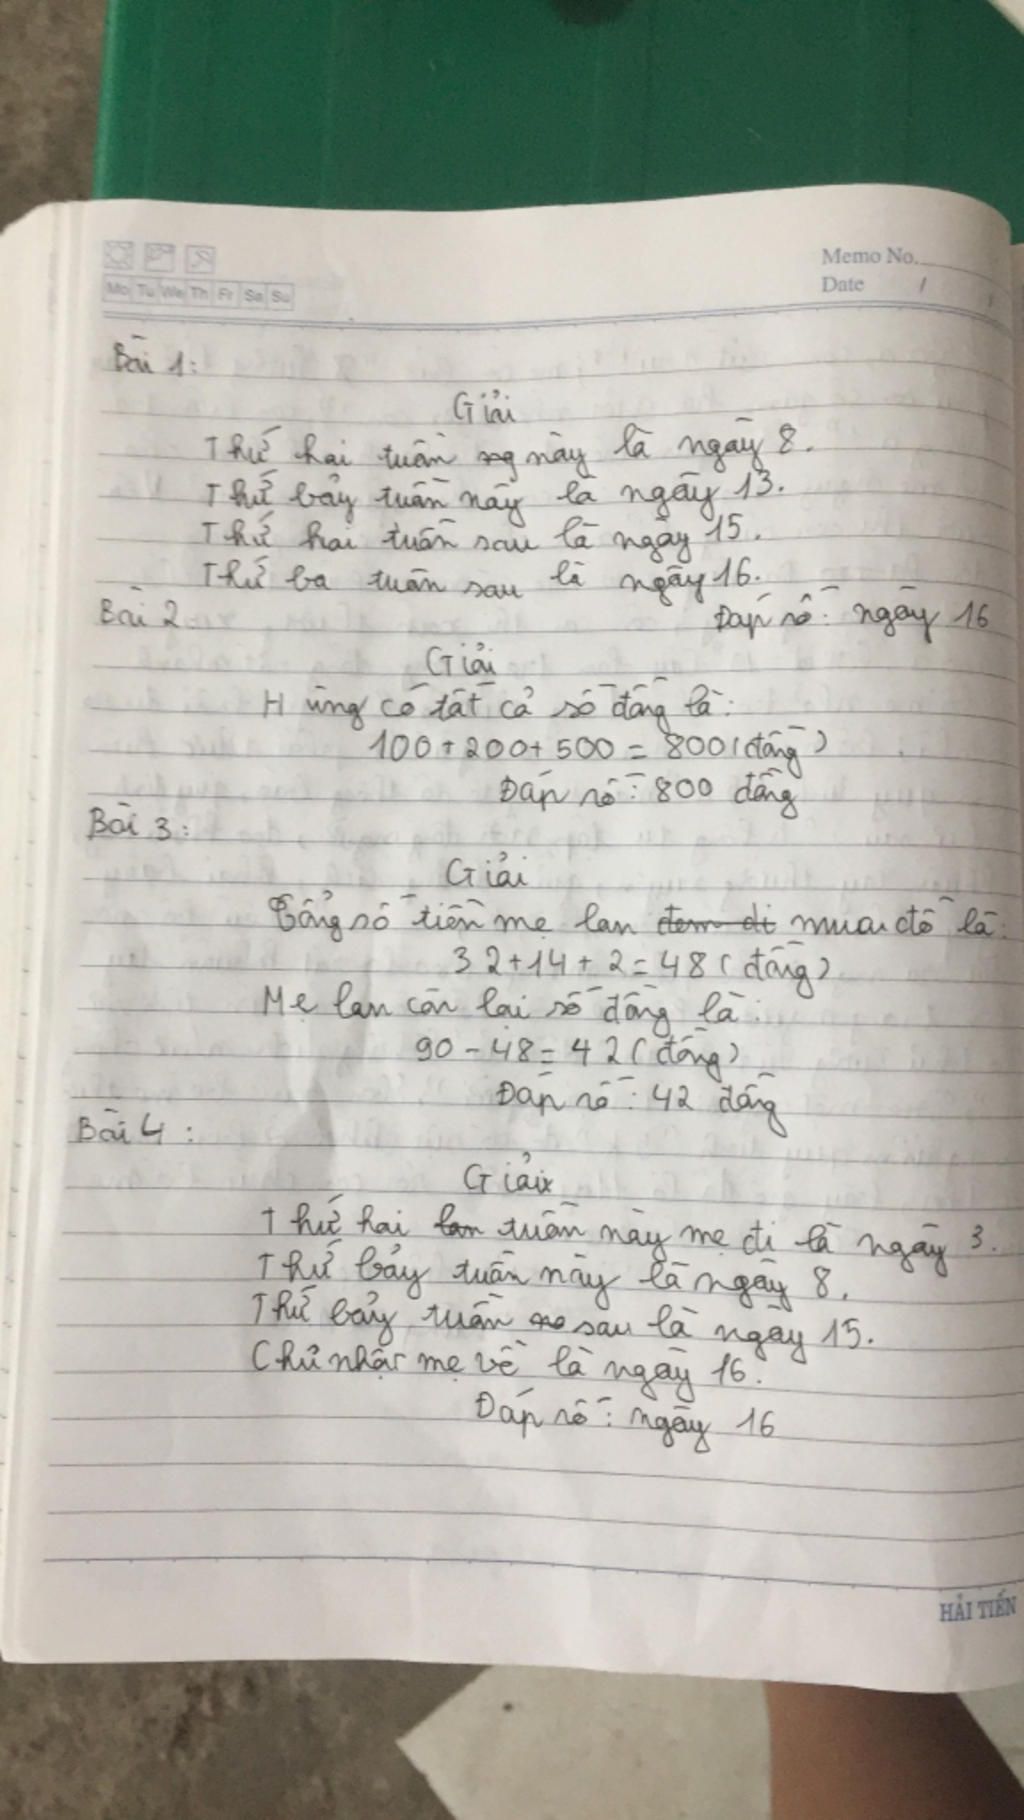 Memo No.
Date / /
Mo Tu We Th Fr Sa Su
Bài 1:
Giải
Thứ hai tuần này là ngày 8.
Thứ bảy tuần này là ngày 13.
Thứ hai tuần sau là ngày 15.
Thứ ba tuần sau là ngày 16.
Đáp số: ngày 16
Bài 2
Giải
Hùng có tất cả số đồng là:
100 + 200 + 500 = 800 (đồng)
Đáp số: 800 đồng
Bài 3:
Giải
Tổng số tiền mẹ lan đem đi mua đồ là:
32 + 14 + 2 = 48 (đồng)
Mẹ lan còn lại số đồng là:
90 - 48 = 42 (đồng)
Đáp số: 42 đồng
Bài 4:
Giải
Thứ hai lan tuần này mẹ đi là ngày 3.
Thứ bảy tuần này là ngày 8.
Thứ bảy tuần sau là ngày 15.
Chủ nhật mẹ về là ngày 16.
Đáp số: ngày 16
HẢI TIẾN